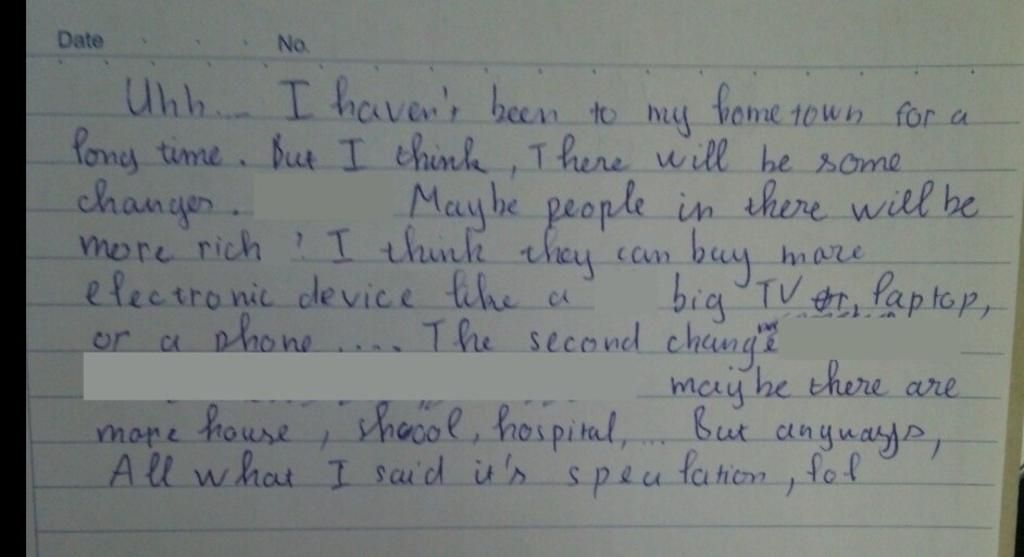 Date No.
Uhh... I haven't been to my hometown for a
long time. But I think, There will be some
changes. Maybe people in there will be
more rich! I think they can buy more
electronic device like a big TV or, laptop,
or a phone.... The second change
maybe there are
more house, shool, hospital,... But anyways,
All what I said it's speculation, lol